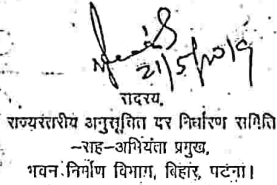 21/5/2019
सदस्य,
राज्यस्तरीय अनुसूचित दर निर्धारण समिति
-सह-अभियंता प्रमुख,
भवन निर्माण विभाग, बिहार, पटना।